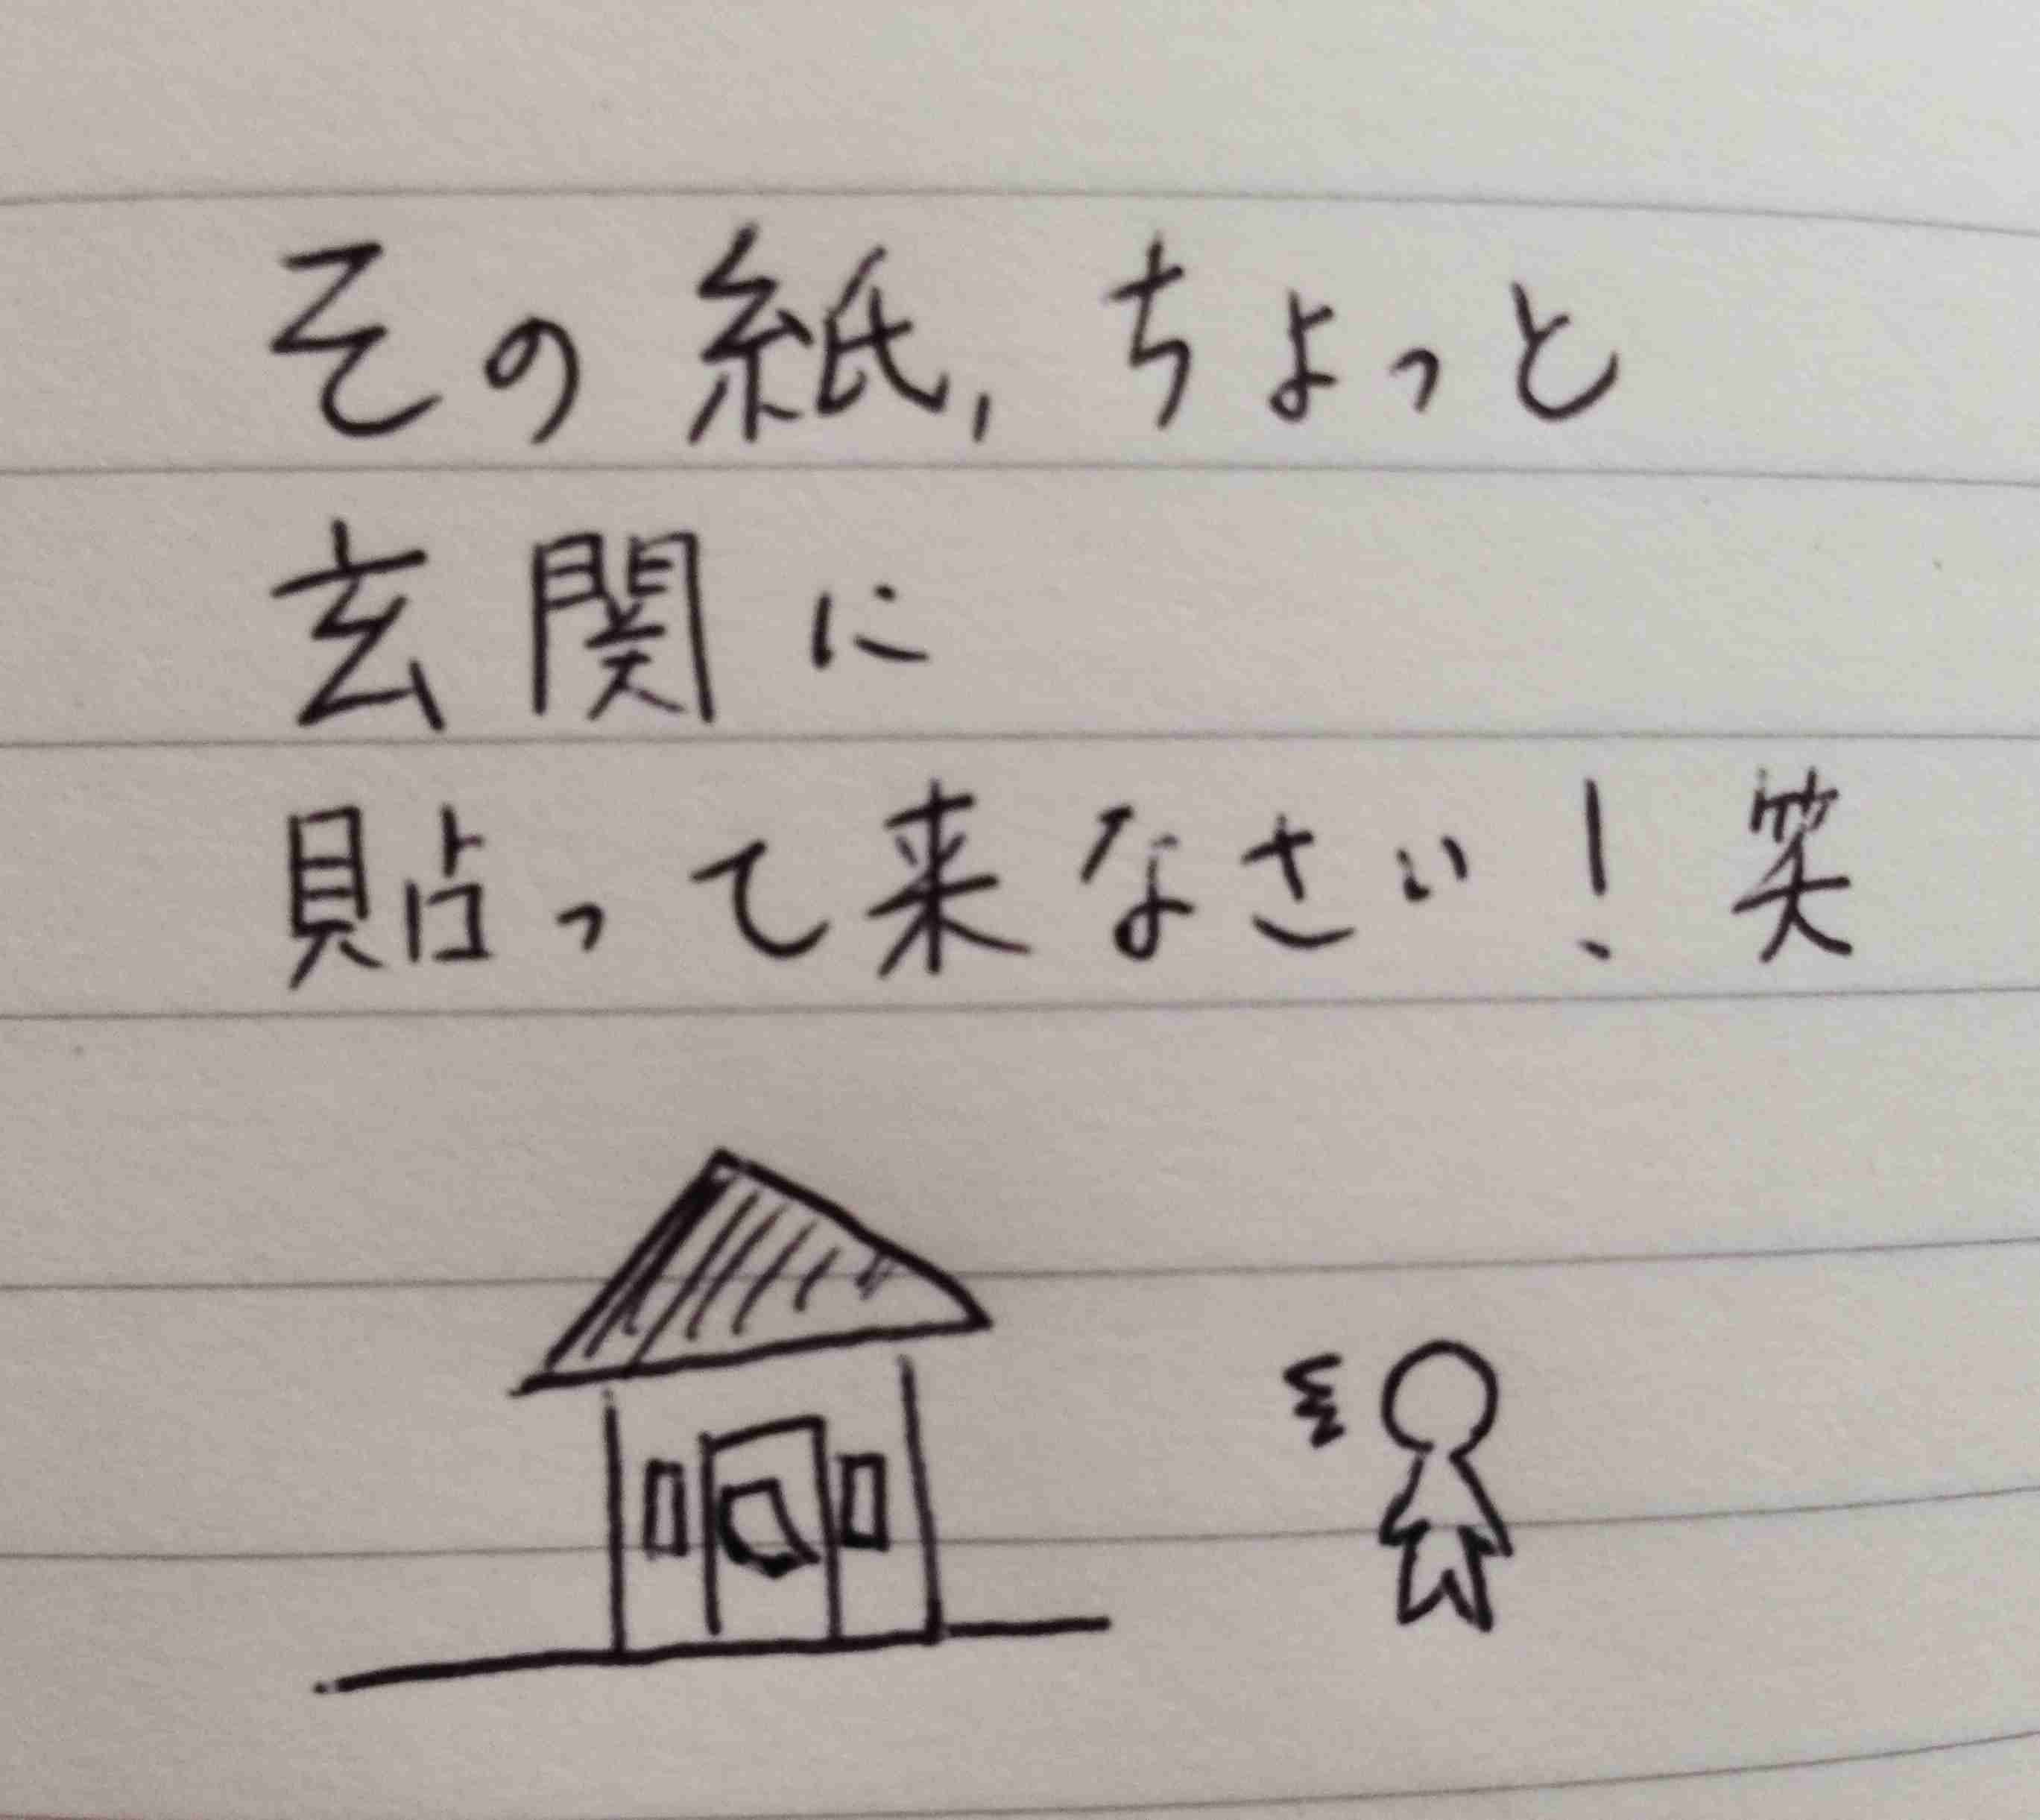 その紙,ちょっと
玄関に
貼って来なさい!笑